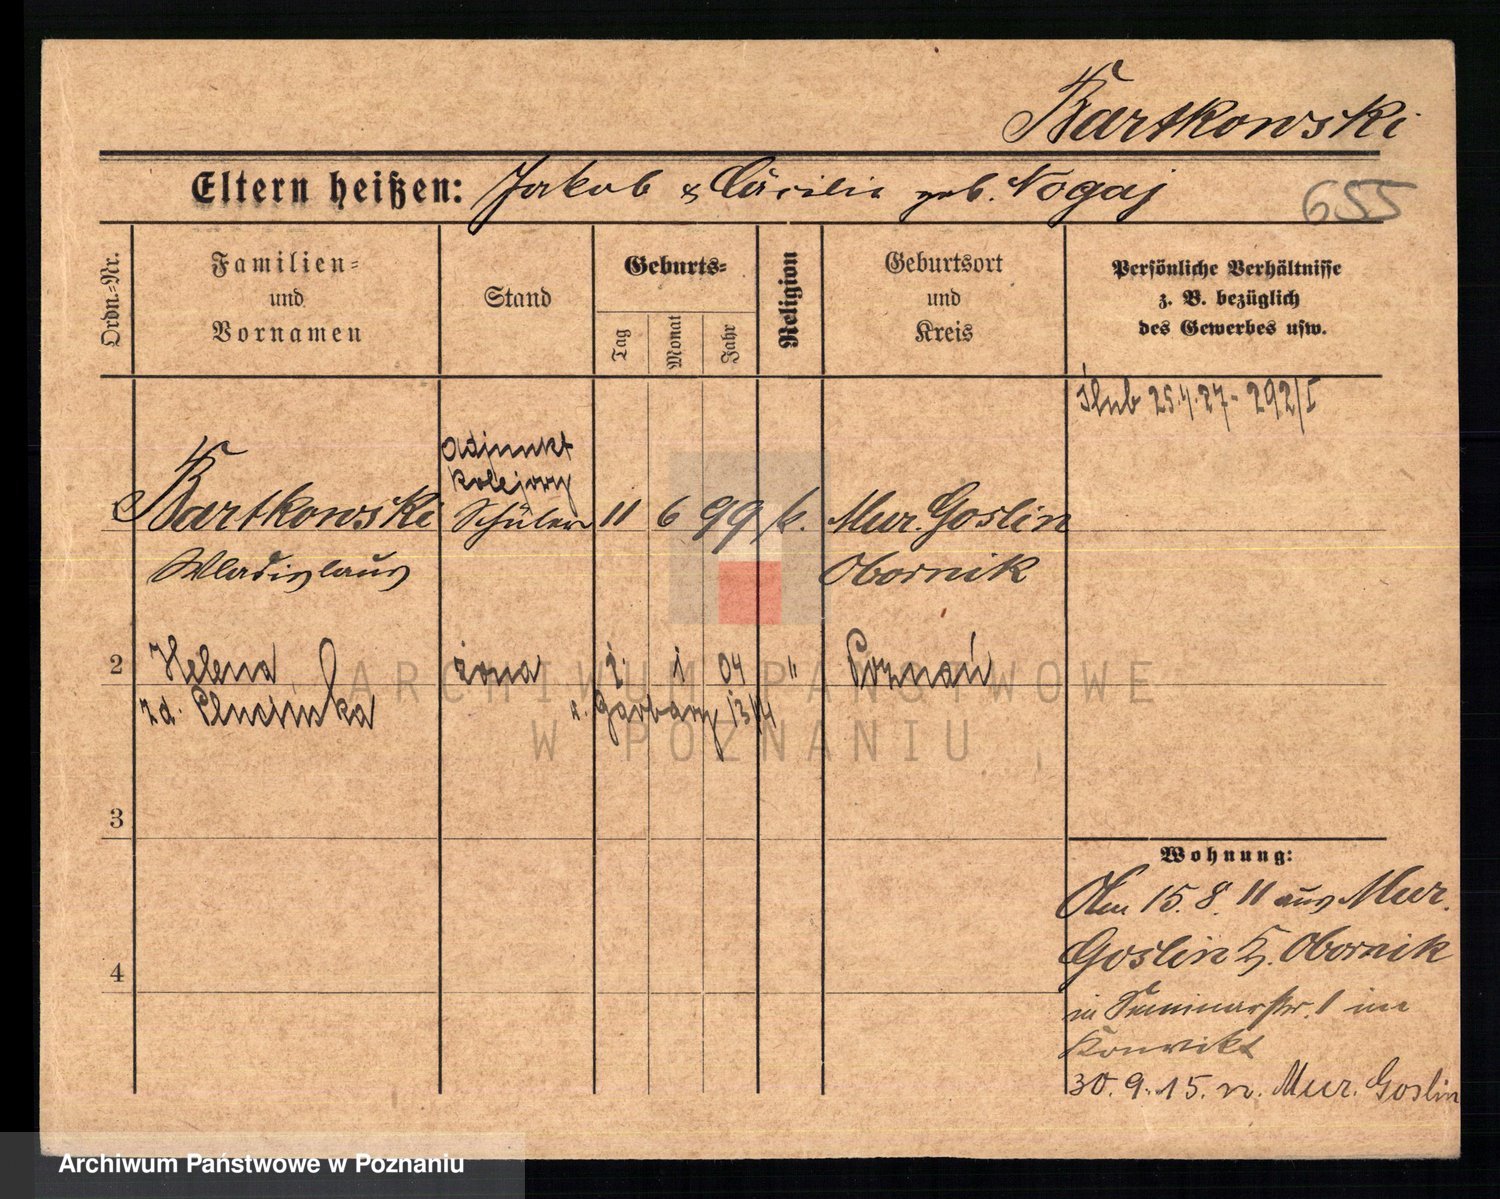 Bartkowski
Eltern heißen: Jakob & Cäcilie geb. Nogaj
655
Ordn.-Nr.
Familien-
und
Vornamen
Stand
Geburts-
Tag
Monat
Jahr
Religion
Geburtsort
und
Kreis
Persönliche Verhältnisse
z. B. bezüglich
des Gewerbes usw.
Ślub 25.4.27 - 292/I
adjunkt
kolejowy
Bartkowski Schüler 11 6 99 k. Mur. Goslin
Wladislaus Obornik
2 Helena żona 2. 1 04 " Poznań
zd. Garbary 13/14
3
4
Wohnung:
Am 15. 8. 11 aus Mur.
Goslin K. Obornik
in Seminarstr. 1 im
Konvikt
30. 9. 15. n. Mur. Goslin
ARCHIWUM PAŃSTWOWE
W POZNANIU
Archiwum Państwowe w Poznaniu